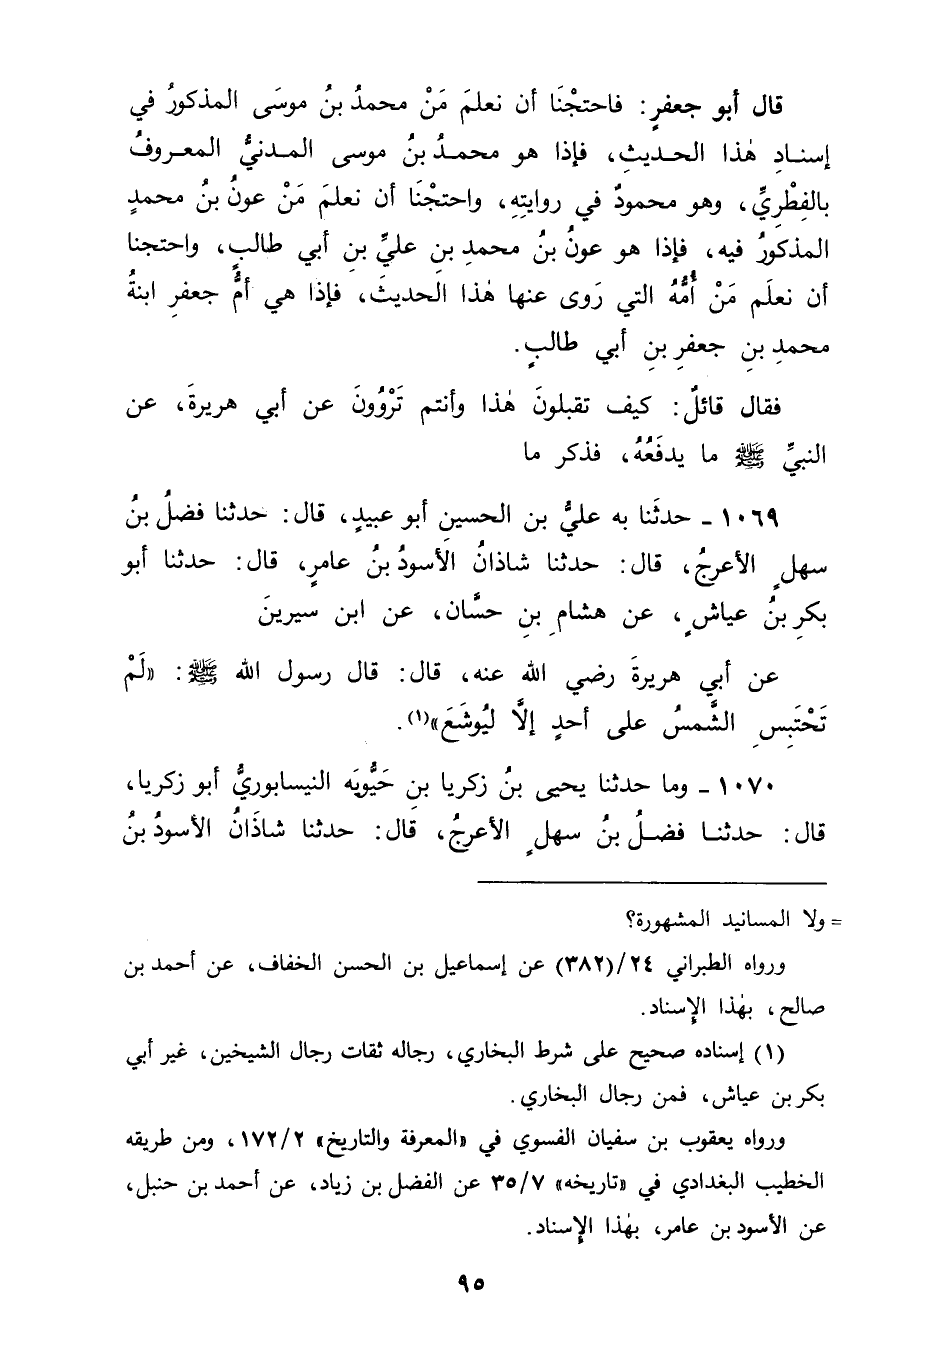 قال أبو جعفرٍ: فاحتجْنَا أن نعلمَ مَنْ محمدُ بنُ موسَى المذكورُ في
إسنادِ هٰذا الحديثِ، فإذا هو محمدُ بنُ موسى المدنيُّ المعروفُ
بالفِطْريِّ، وهو محمودٌ في روايتِهِ، واحتجْنَا أن نعلمَ مَنْ عونُ بنُ محمدٍ
المذكورُ فيه، فإذا هو عونُ بنُ محمدِ بنِ عليِّ بنِ أبي طالبٍ، واحتجنا
أن نعلَم مَنْ أُمُّهُ التي رَوى عنها هٰذا الحديثَ، فإذا هي أمُّ جعفرِ ابنةُ
محمدِ بنِ جعفرِ بنِ أبي طالبٍ.
فقال قائلٌ: كيف تقبلونَ هٰذا وأنتم تَرْوُونَ عن أبي هريرةَ، عن
النبيِّ ﷺ ما يدفَعُهُ، فذكر ما
١٠٦٩ ـ حدثَنا به عليُّ بن الحسينِ أبو عبيدٍ، قال: حدثنا فضلُ بنُ
سهلٍ الأعرجُ، قال: حدثنا شاذانُ الأسودُ بنُ عامرٍ، قال: حدثنا أبو
بكرِ بنُ عياشٍ، عن هشامِ بنِ حسَّان، عن ابن سيرينَ
عن أبي هريرةَ رضي الله عنه، قال: قال رسول الله ﷺ: «لَمْ
تَحْتَبِسِ الشَّمسُ على أحدٍ إلَّا لِيُوشَعَ»(١).
١٠٧٠ ـ وما حدثنا يحيى بنُ زكريا بنِ حَيُّويَه النيسابوريُّ أبو زكريا،
قال: حدثنا فضلُ بنُ سهلٍ الأعرجُ، قال: حدثنا شاذَانُ الأسودُ بنُ
= ولا المسانيد المشهورة؟
ورواه الطبراني ٢٤/(٣٨٢) عن إسماعيل بن الحسن الخفاف، عن أحمد بن
صالح، بهٰذا الإسناد.
(١) إسناده صحيح على شرط البخاري، رجاله ثقات رجال الشيخين، غير أبي
بكر بن عياش، فمن رجال البخاري.
ورواه يعقوب بن سفيان الفسوي في «المعرفة والتاريخ» ١٧٢/٢، ومن طريقه
الخطيب البغدادي في «تاريخه» ٣٥/٧ عن الفضل بن زياد، عن أحمد بن حنبل،
عن الأسود بن عامر، بهٰذا الإسناد.
٩٥